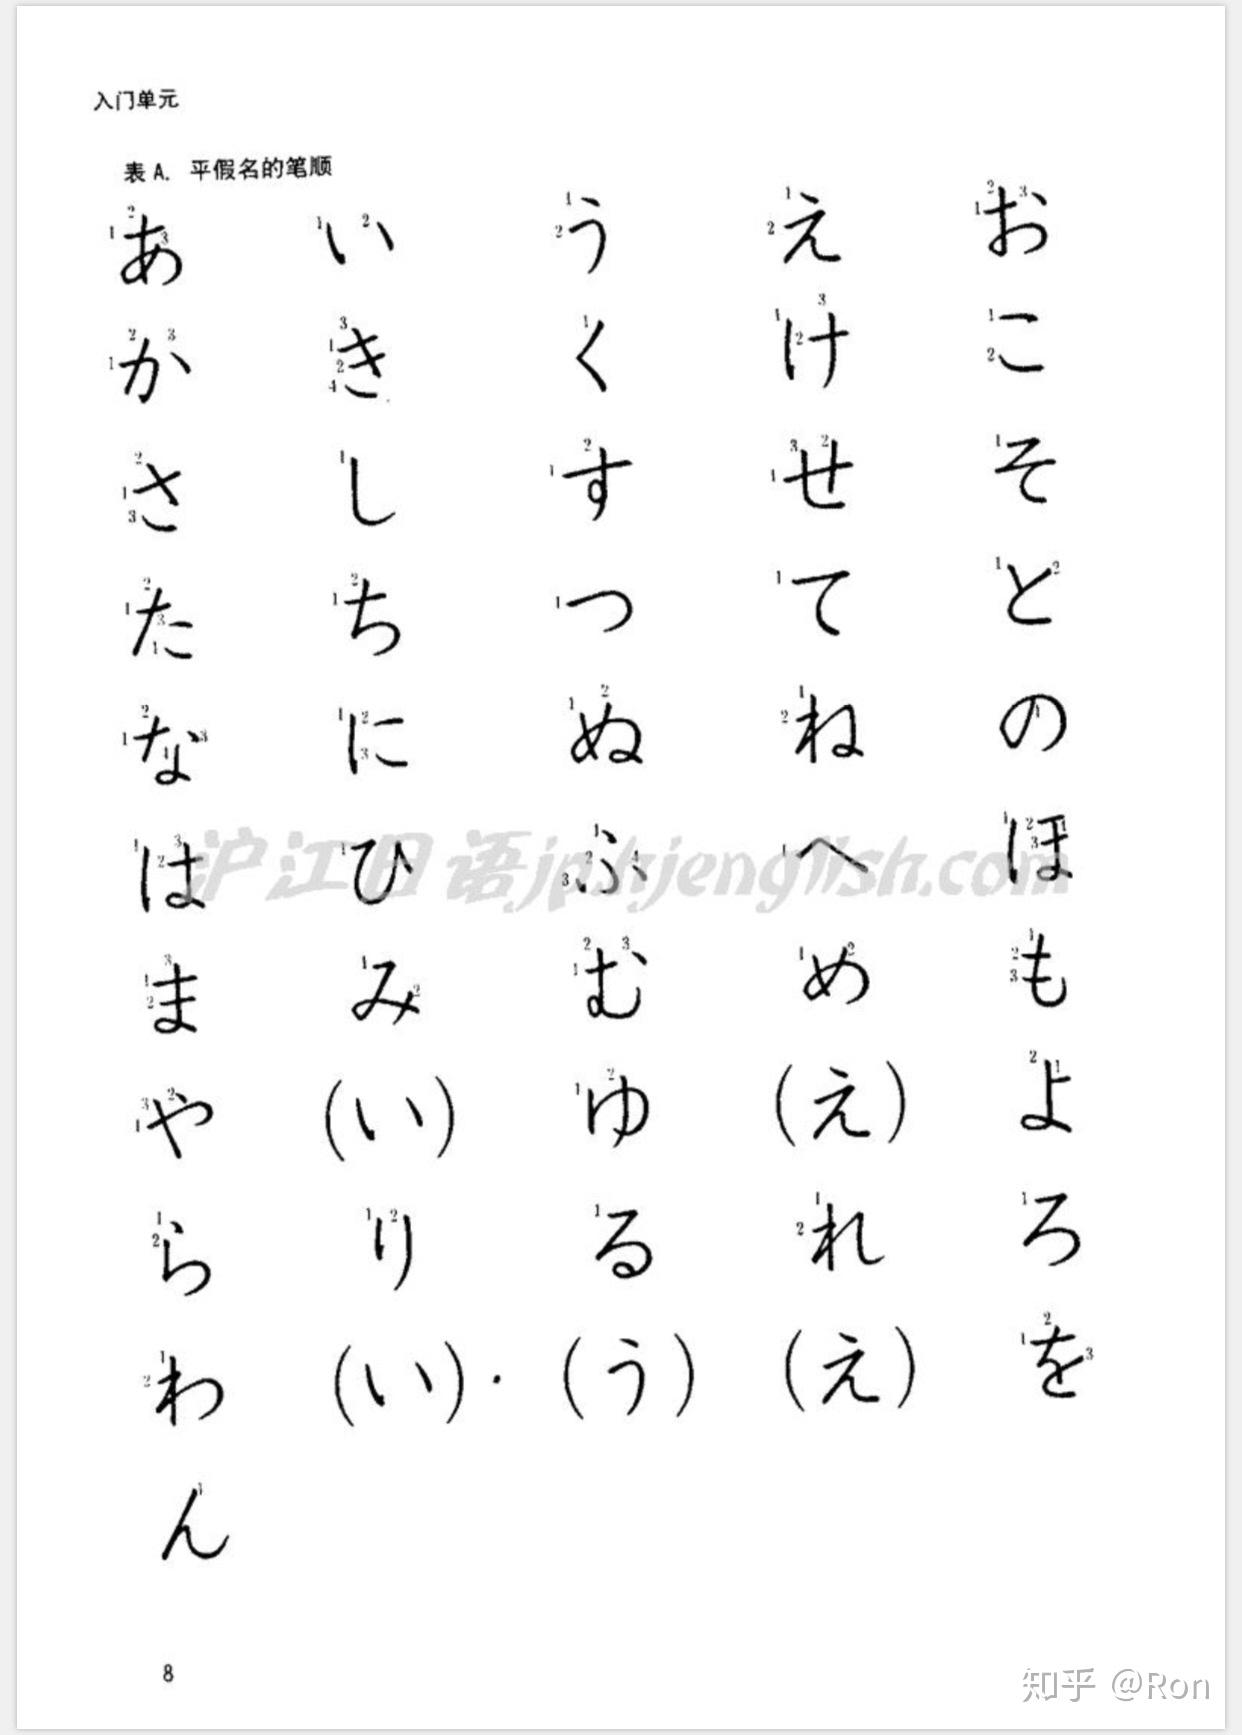 入门单元
表 A. 平假名的笔顺
あ い う え お
か き く け こ
さ し す せ そ
た ち つ て と
な に ぬ ね の
は ひ ふ へ ほ
沪江日语jp.hjenglish.com
ま み む め も
や (い) ゆ (え) よ
ら り る れ ろ
わ (い)· (う) (え) を
ん
8
知乎 @Ron